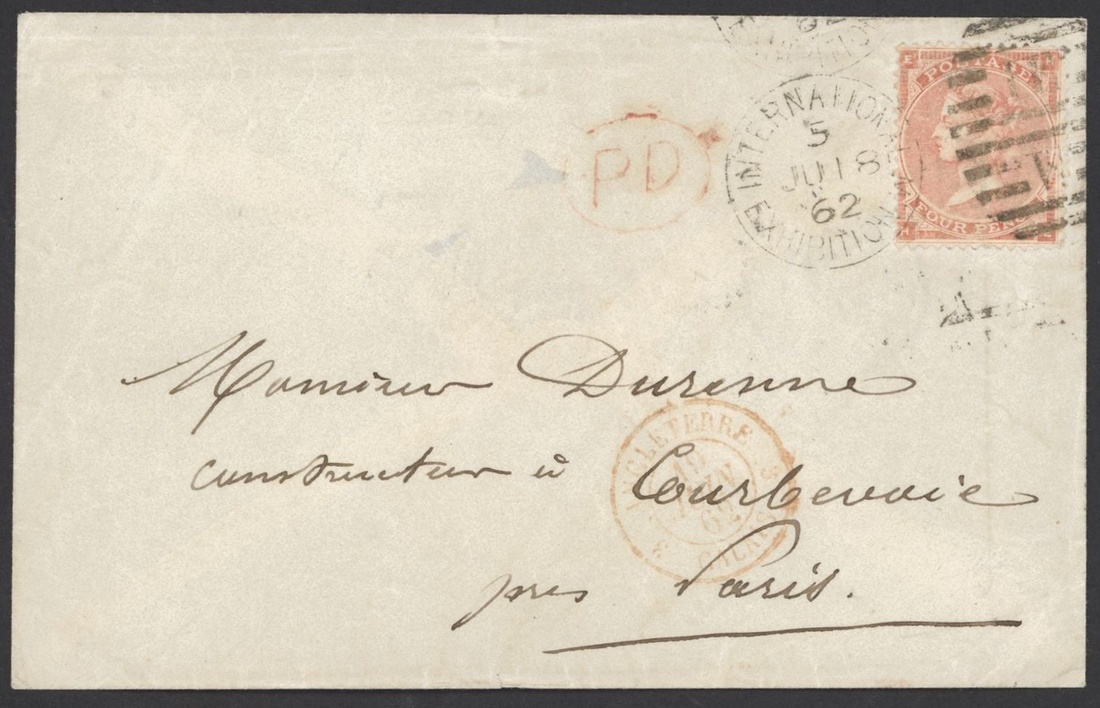 INTERNATIONAL EXHIBITION
5
JU 18
62
POSTAGE
FOUR PENCE
PD
Monsieur Durenne
constructeur à Courbevoie
près Paris.
ANGLETERRE
62
CALAIS